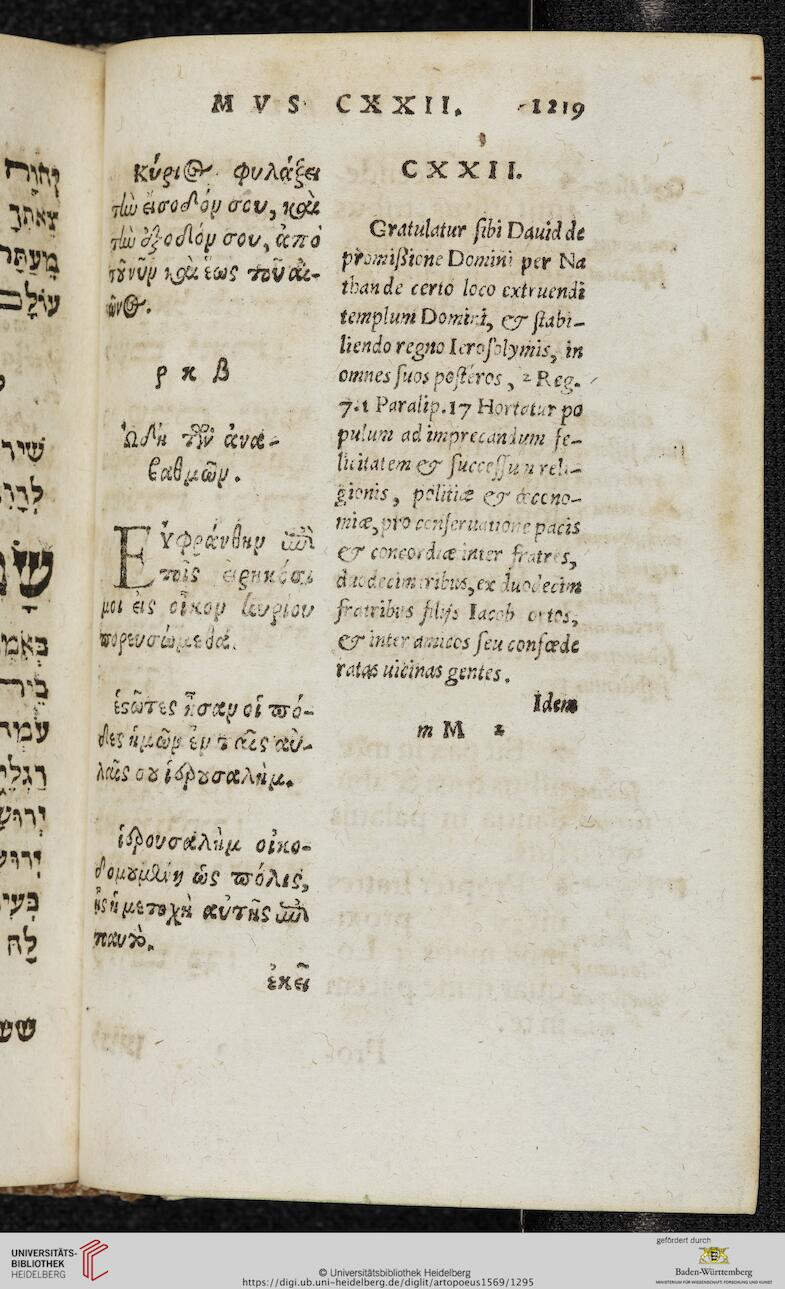 MVS CXXII. 1219
Κύριος φυλάξει
τὴν εἴσοδόν σου, καὶ
τὴν ἔξοδόν σου, ἀπὸ
τοῦ νῦν καὶ ἕως τοῦ αἰ-
ῶνος.
ρκβ
Ὠδὴ τῶν ἀνα-
βαθμῶν.
Εὐφράνθην ἐπὶ
τοῖς εἰρηκόσι
μοι εἰς οἶκον κυρίου
πορευσώμεθα.
ἑστῶτες ἦσαν οἱ πό-
δες ἡμῶν ἐν ταῖς αὐ-
λαῖς σου ἱερουσαλήμ.
ἱερουσαλὴμ οἰκο-
δομουμένη ὡς πόλις,
ἧς ἡ μετοχὴ αὐτῆς ἐπὶ
ἐκεῖ
CXXII.
Gratulatur sibi Dauid de
promißione Domini per Na
than de certo loco extruendi
templum Domini, & stabi-
liendo regno Ierosolymis, in
omnes suos posteros, 2 Reg.
7.1 Paralip.17 Hortatur po
pulum ad imprecandum fe-
licitatem & successum reli-
gionis, politiæ & œcono-
miæ, pro conseruatione pacis
& concordiæ inter fratres,
duodecim tribus, ex duodecim
fratribus filijs Iacob ortos,
& inter amicos seu confœde
ratas uicinas gentes.
Idem
m M 2
וָה
צֵאתְךָ
מֵעַתָּה
עוֹלָם
שִׁיר
UNIVERSITÄTS-
BIBLIOTHEK
HEIDELBERG
© Universitätsbibliothek Heidelberg
https://digi.ub.uni-heidelberg.de/diglit/artopoeus1569/1295
gefördert durch
Baden-Württemberg
MINISTERIUM FÜR WISSENSCHAFT, FORSCHUNG UND KUNST